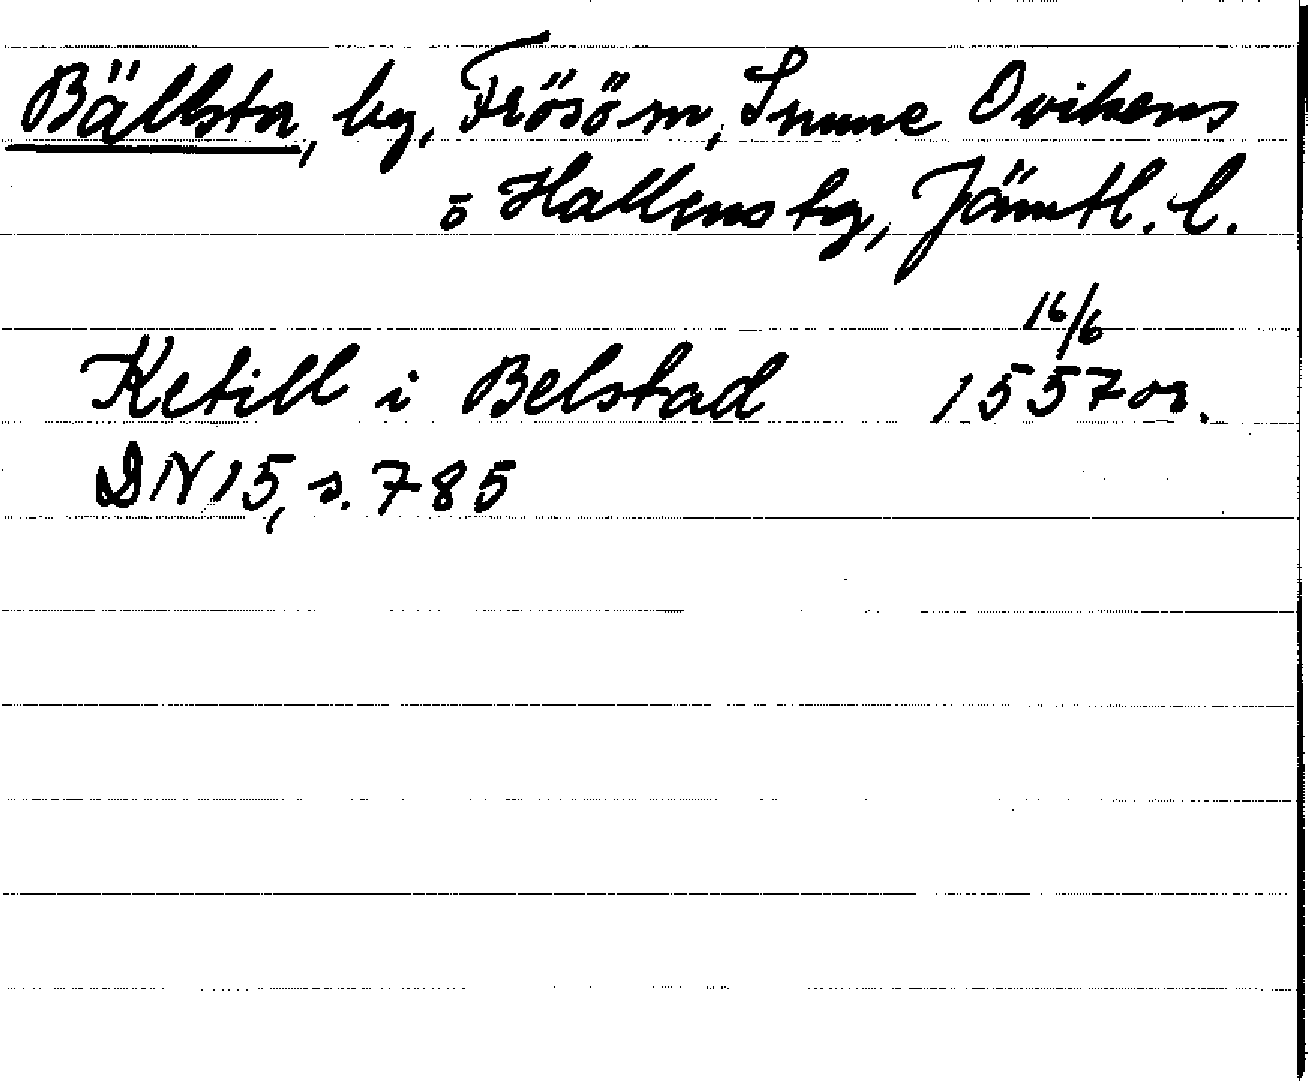 Bällsta, by, Frösö sn, Sunne Ovikens
o Hallens tg, Jämtl. l.
16/6
Ketill i Belstad 1557 or.
DN 15, s. 785